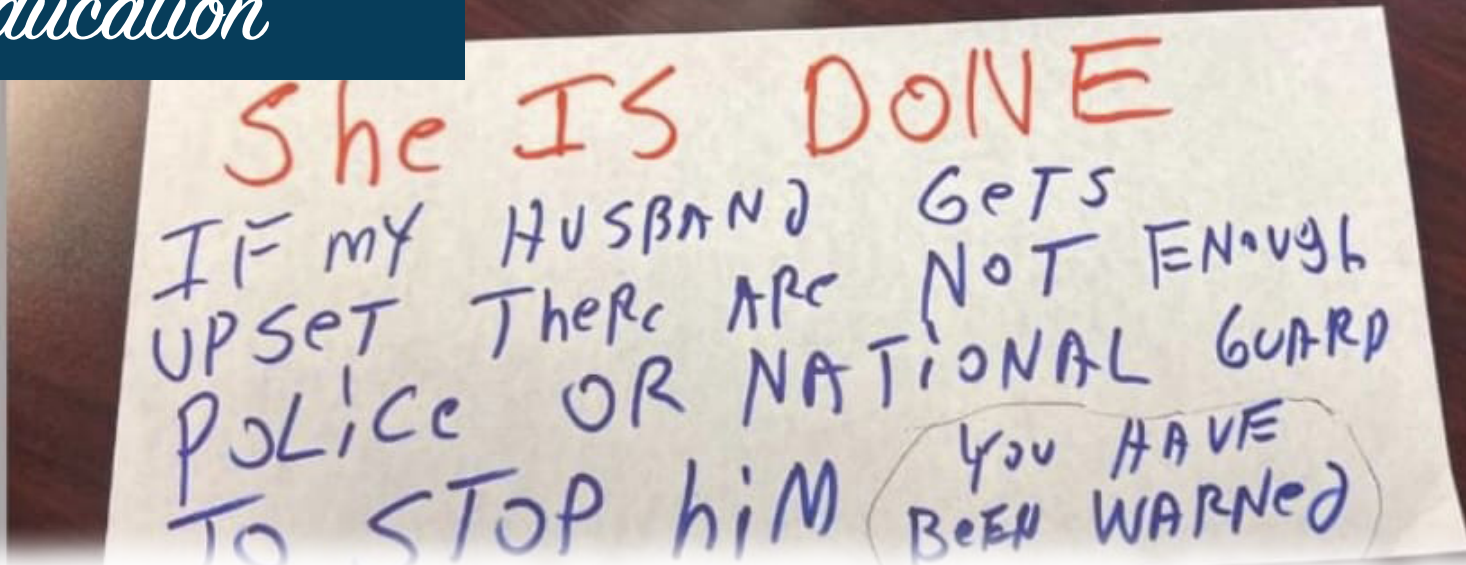 She IS DONE
IF MY HUSBAND GeTS
UPSeT TheRe ARe NOT ENOUgh
POLiCe OR NATiONAL GUARD
TO STOP hiM
YOU HAVE
BeEN WARNed